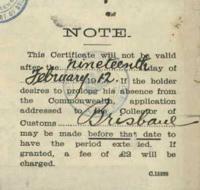 NOTE.
This Certificate will not be valid
after the nineteenth day of
February 12. If the holder
desires to prolong his absence from
the Commonwealth, application
addressed to the Collector of
Customs Brisbane
may be made before that date to
have the period exte ed. If
granted, a fee of £2 will be
charged.